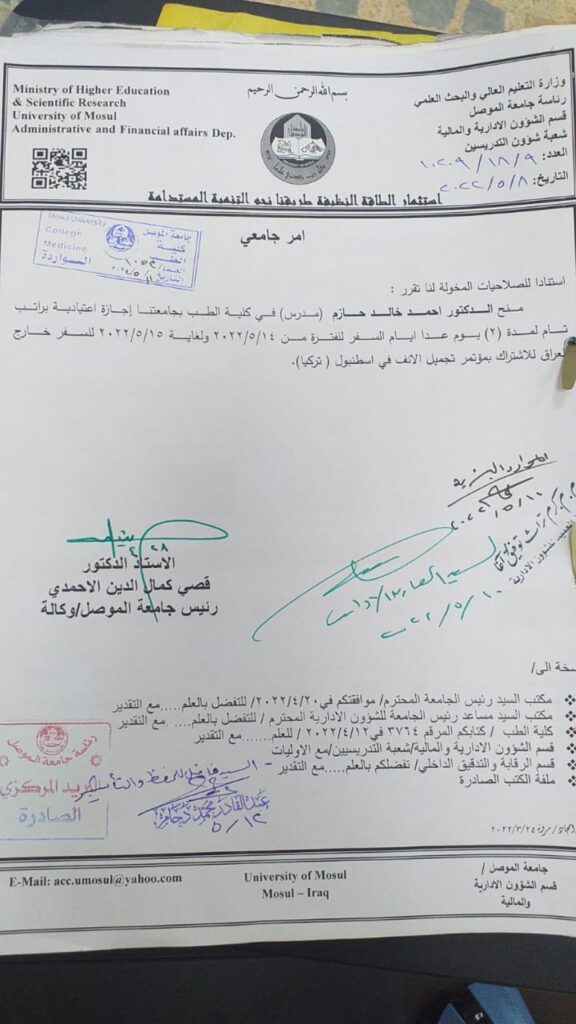 Ministry of Higher Education
& Scientific Research
University of Mosul
Administrative and Financial affairs Dep.
بسم الله الرحمن الرحيم
وزارة التعليم العالي والبحث العلمي
رئاسة جامعة الموصل
قسم الشؤون الادارية والمالية
شعبة شؤون التدريسين
العدد: ١٠٢٠٩/١٨/٩
التاريخ: ٢٠٢٢/٥/٨
استثمار الطاقة النظيفة طريقنا نحو التنمية المستدامة
Mosul University
College
Medicine
جامعة الموصل
كلية
الطب
الواردة
امر جامعي
استنادا للصلاحيات المخولة لنا تقرر :
منح الدكتور احمد خالد حازم (مدرس) في كلية الطب بجامعتنا إجازة اعتيادية براتب
تام لمدة (٢) يوم عدا ايام السفر للفترة من ٢٠٢٢/٥/١٤ ولغاية ٢٠٢٢/٥/١٥ للسفر خارج
لعراق للاشتراك بمؤتمر تجميل الانف في اسطنبول ( تركيا).
الموارد البشرية
٢٠٢٢/٥/١٠
٤/٢٨
الاستاذ الدكتور
قصي كمال الدين الاحمدي
رئيس جامعة الموصل/وكالة
سخة الى/
مكتب السيد رئيس الجامعة المحترم/ موافقتكم في٢٠٢٢/٤/٢٠/ للتفضل بالعلم.....مع التقدير
مكتب السيد مساعد رئيس الجامعة للشؤون الادارية المحترم / للتفضل بالعلم.... .مع التقدير
كلية الطب / كتابكم المرقم ٣٧٦٤ في ٢٠٢٢/٤/١٢ / للعلم.......مع التقدير
قسم الشؤون الادارية والمالية/شعبة التدريسيين/مع الاوليات
قسم الرقابة والتدقيق الداخلي/ تفضلكم بالعلم....مع التقدير
ملفة الكتب الصادرة
رئاسة جامعة الموصل
البريد المركزي
الصادرة
٥/١٢
٢٠٢٢/٣/٢٤
E-Mail: acc.umosul@yahoo.com
University of Mosul
Mosul – Iraq
جامعة الموصل /
قسم الشؤون الادارية
والمالية